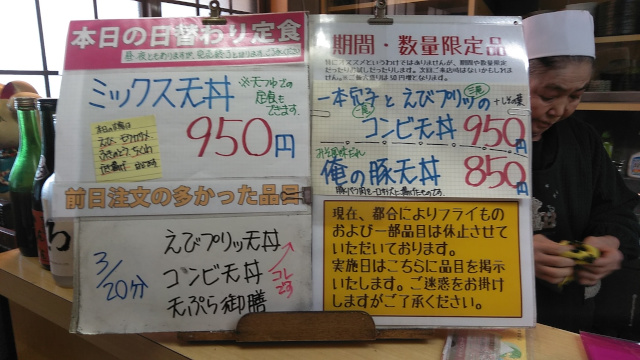 本日の日替わり定食
ミックス天丼
※天つゆでの
定食も
できます。
950円
前日注文の多かった品目
3/20分
えびプリッ天丼
コンビ天丼
天ぷら御膳
コレです
期間・数量限定品
一本穴子とえびプリッの
コンビ天丼 950円
俺の豚天丼 850円
現在、都合によりフライもの
および一部品目は休止させて
いただいております。
実施日はこちらに品目を掲示
いたします。ご迷惑をお掛け
しますがご了承ください。